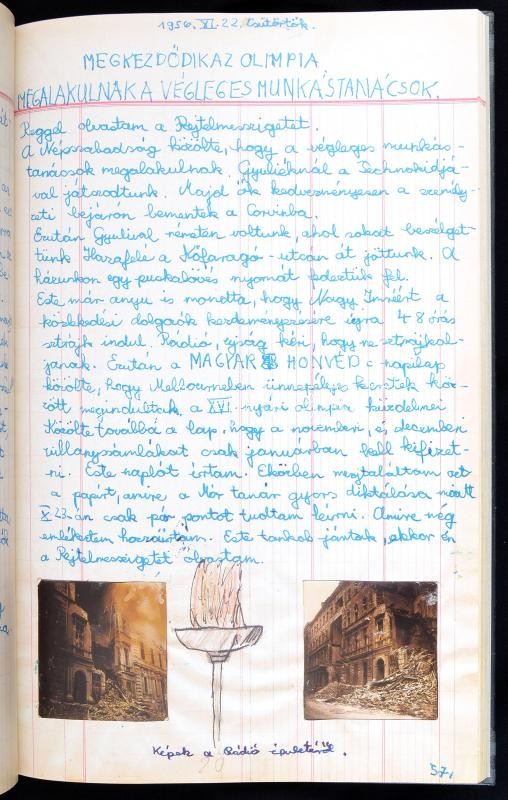 1956. XI. 22. Csütörtök.
MEGKEZDŐDIK AZ OLIMPIA.
MEGALAKULNAK A VÉGLEGES MUNKÁSTANÁCSOK.
Reggel olvastam a Rejtelmesszigetet.
A Népszabadság közölte, hogy a végleges munkás-
tanácsok megalakulnak. Gyuliéknál a Technokidjá-
val játszodtunk. Majd ők kedvezményesen a személy-
zeti bejárón bementek a Corvinba.
Ezután Gyulival réneten voltunk, ahol sokat beszélget-
tünk Hazafelé a Kőfaragó-utcán át jöttünk. A
házunkon egy puskalövés nyomát fedeztük fel.
Este már anyu is mondta, hogy Nagy Imréért a
közlekedési dolgozók kezdeményezésére újra 48 órás
sztrájk indul. Rádió, újság kéri, hogy ne sztrájkol-
janak. Ezután a MAGYAR HONVÉD c. napilap
közölte, hogy Melbourneben ünnepélyes keretek kö-
zött megindultak a XVI. nyári olimpia küzdelmei
Közölte továbbá a lap, hogy a novemberi, és decemberi
villanyszámlákat csak januárban kell kifizet-
ni. Este naplót írtam. Eközben megtaláltam azt
a papírt, amire a Mór tanár gyors diktálása miatt
X 23-án csak pár pontot tudtam leírni. Amire még
emlékeztem hozzáírtam. Este tankok jártak, ekkor én
a Rejtelmesszigetet olvastam.
Képek a Rádió épületéről.
57.